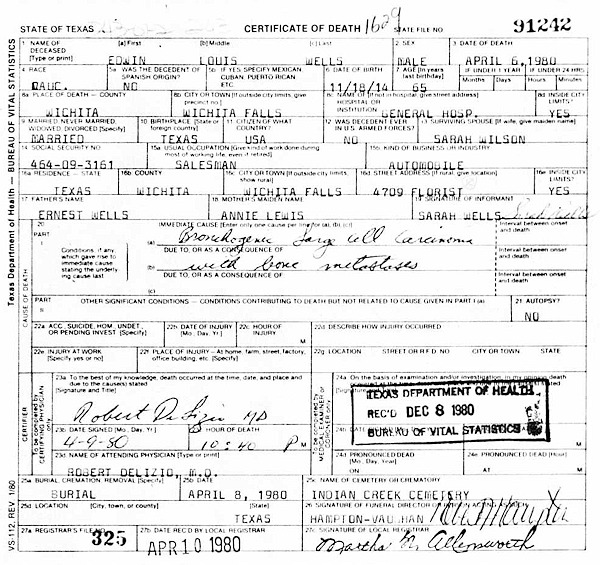 STATE OF TEXAS CERTIFICATE OF DEATH 1629 STATE FILE NO. 91242
1 NAME OF DECEASED [Type or print] [a] First [b] Middle [c] Last 2 SEX 3 DATE OF DEATH
EDWIN LOUIS WELLS MALE APRIL 6, 1980
4 RACE 5a WAS THE DECEDENT OF SPANISH ORIGIN? 5b IF YES, SPECIFY MEXICAN, CUBAN, PUERTO RICAN, ETC. 6 DATE OF BIRTH 7 AGE [In years last birthday] IF UNDER 1 YEAR Months Days IF UNDER 24 HRS Hours Minutes
CAUC. NO 11/18/14 65
8a PLACE OF DEATH — COUNTY 8b CITY OR TOWN [If outside city limits, give precinct no.] 8c NAME OF [If not in hospital, give street address] HOSPITAL OR INSTITUTION 8d INSIDE CITY LIMITS?
WICHITA WICHITA FALLS GENERAL HOSP. YES
9 MARRIED, NEVER MARRIED, WIDOWED, DIVORCED [Specify] 10 BIRTHPLACE [State or foreign country] 11 CITIZEN OF WHAT COUNTRY? 12 WAS DECEDENT EVER IN U.S. ARMED FORCES? 13 SURVIVING SPOUSE [If wife, give maiden name]
MARRIED TEXAS USA NO SARAH WILSON
14 SOCIAL SECURITY NO. 15a USUAL OCCUPATION [Give kind of work done during most of working life, even if retired] 15b KIND OF BUSINESS OR INDUSTRY
464-09-3161 SALESMAN AUTOMOBILE
16a RESIDENCE — STATE 16b COUNTY 16c CITY OR TOWN [If outside city limits, show rural] 16d STREET ADDRESS [If rural, give location] 16e INSIDE CITY LIMITS?
TEXAS WICHITA WICHITA FALLS 4709 FLORIST YES
17 FATHER'S NAME 18 MOTHER'S MAIDEN NAME 19 SIGNATURE OF INFORMANT
ERNEST WELLS ANNIE LEWIS SARAH WELLS Sarah Wells
20 PART I IMMEDIATE CAUSE [Enter only one cause per line for (a), (b), (c)] Interval between onset and death
(a) Bronchogenic large cell carcinoma
Conditions, if any, which gave rise to immediate cause stating the underlying cause last
DUE TO, OR AS A CONSEQUENCE OF Interval between onset and death
(b) with bone metastases
DUE TO, OR AS A CONSEQUENCE OF Interval between onset and death
(c)
PART II OTHER SIGNIFICANT CONDITIONS — CONDITIONS CONTRIBUTING TO DEATH BUT NOT RELATED TO CAUSE GIVEN IN PART I (a) 21 AUTOPSY?
NO
22a ACC., SUICIDE, HOM., UNDET., OR PENDING INVEST [Specify] 22b DATE OF INJURY [Mo., Day, Yr.] 22c HOUR OF INJURY M 22d DESCRIBE HOW INJURY OCCURRED
22e INJURY AT WORK [Specify yes or no] 22f PLACE OF INJURY — At home, farm, street, factory, office building, etc. [Specify] 22g LOCATION STREET OR R.F.D. NO. CITY OR TOWN STATE
23a To the best of my knowledge, death occurred at the time, date, and place and due to the cause(s) stated [Signature and Title] 24a On the basis of examination and/or investigation, in my opinion death
Robert DeLizio MD
TEXAS DEPARTMENT OF HEALTH
REC'D DEC 8 1980
BUREAU OF VITAL STATISTICS
23b DATE SIGNED [Mo., Day, Yr.] HOUR OF DEATH
4-9-80 10:40 P M
23d NAME OF ATTENDING PHYSICIAN [Type or print] 24c PRONOUNCED DEAD [Mo., Day, Year] ON 24e PRONOUNCED DEAD [Hour] AT M
ROBERT DELIZIO, M.D.
25a BURIAL, CREMATION, REMOVAL [Specify] 25b DATE 25c NAME OF CEMETERY OR CREMATORY
BURIAL APRIL 8, 1980 INDIAN CREEK CEMETERY
25d LOCATION [City, town, or county] [State] 26 SIGNATURE OF FUNERAL DIRECTOR OR PERSON ACTING AS SUCH
TEXAS HAMPTON-VAUGHAN
27a REGISTRAR'S FILE NO. 27b DATE REC'D BY LOCAL REGISTRAR 27c SIGNATURE OF LOCAL REGISTRAR
325 APR 10 1980 Martha M. Allensworth
Texas Department of Health — BUREAU OF VITAL STATISTICS
CAUSE OF DEATH
CERTIFIER
To be completed by CERTIFYING PHYSICIAN only
To be completed by MEDICAL EXAMINER or CORONER only
VS-112, REV. 1/80